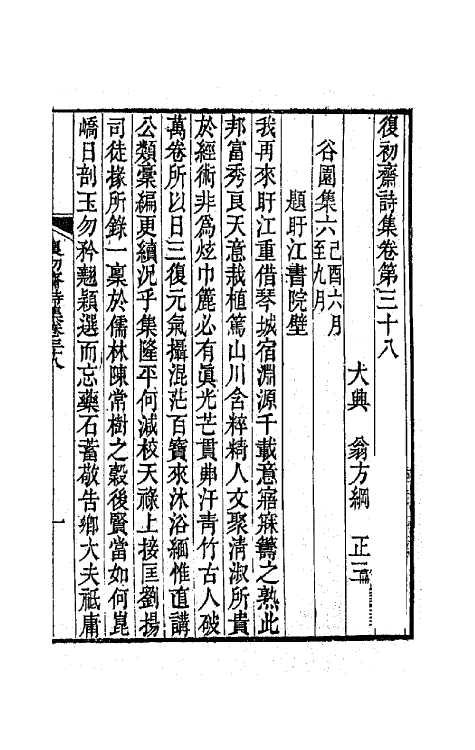 復初齋詩集卷第三十八
大興　翁方綱　正三
谷園集六己酉六月至九月
題盱江書院壁
我再來盱江重借琴城宿淵源千載意寤寐籌之熟此
邦富秀良天意栽植篤山川含粹精人文聚清淑所貴
於經術非為炫巾簏必有眞光芒貫弗汗青竹古人破
萬卷所以日三復元氣攝混茫百寶來沐浴緬惟直講
公類藁編更續況乎集隆平何減校天祿上接匡劉揚
司徒掾所錄一稟於儒林陳常樹之穀後賢當如何崑
嶠日剖玉勿矜翹穎選而忘藥石蓄敬告鄉大夫祗庸
復初齋詩集卷三十八
一